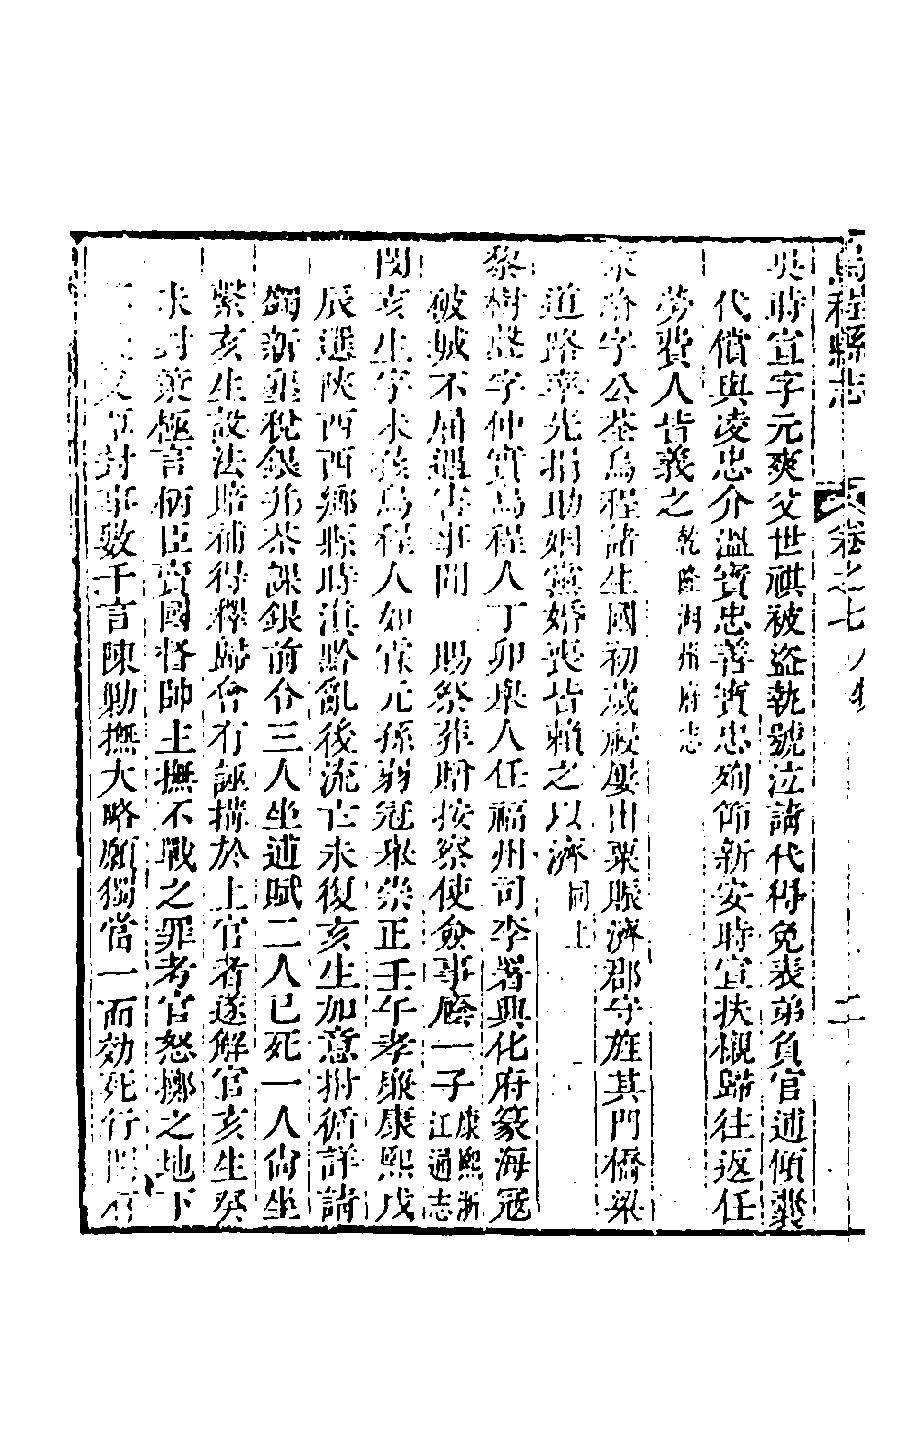 烏程縣志 卷之七 人物 二
吳時宣字元爽父世祺被盜執號泣請代得免表弟負官逋傾囊
代償與凌忠介溫寶忠善寶忠殉節新安時宣扶櫬歸往返任
勞費人皆義之乾隆湖州府志
字公荃烏程諸生國初歲屢出粟賑濟郡守旌其門橋梁
道路率先捐助姻黨婚喪皆賴之以濟同上
黎樹聲字仲實烏程人丁卯舉人任福州司李署興化府篆海寇
破城不屈遇害事聞 賜祭葬贈按察使僉事廕一子康熙浙江通志
閔亥生字木孫烏程人如霖元孫弱冠舉崇正壬午孝廉康熙戊
辰選陝西西鄉縣時滇黔亂後流亡未復亥生加意拊循詳請
蠲新墾稅銀并茶課銀前令三人坐逋賦二人已死一人尙坐
繫亥生設法賠補得釋歸會有誣揹於上官者遂解官亥生癸
未對策極言柄臣賣國督師主撫不戰之罪考官怒擲之地下
又草封事數千言陳勦撫大略願獨當一面效死行間有